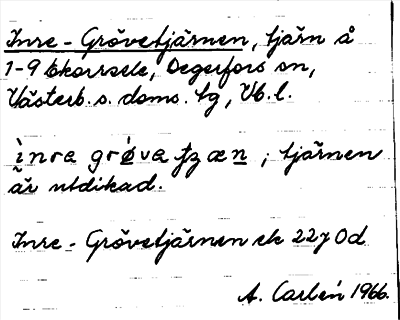 Inre - Grövetjärnen, tjärn å
1-9 Ekorrsele, Degerfors sn,
Västerb. s. doms. tg, Vb. l.
ìnra grø̀va ɟʒæn ; tjärnen
är utdikad.
Inre - Grövetjärnen ek 22J 0d
A. Carlén 1966.